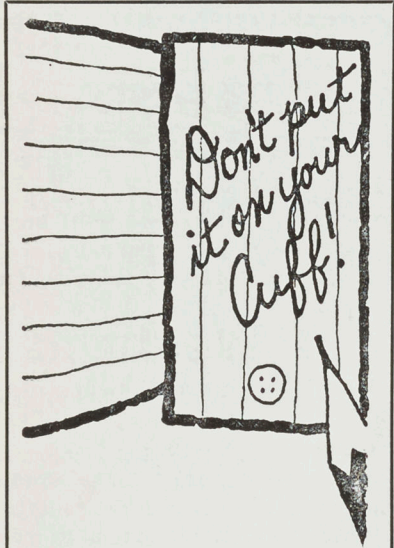 Don't put
it on your
Cuff!